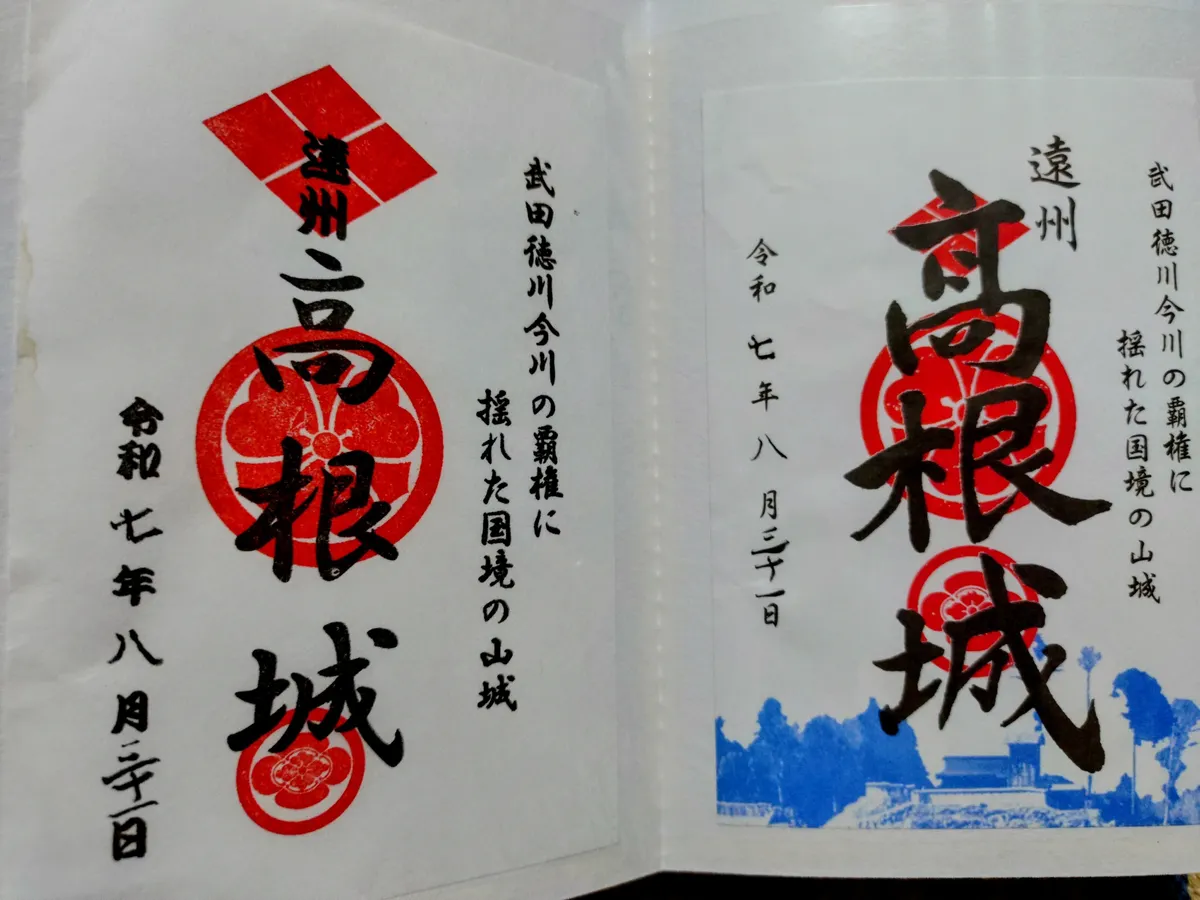 武田徳川今川の覇権に
揺れた国境の山城
遠州
高根城
令和七年八月三十一日
武田徳川今川の覇権に
揺れた国境の山城
遠州
高根城
令和七年八月三十一日